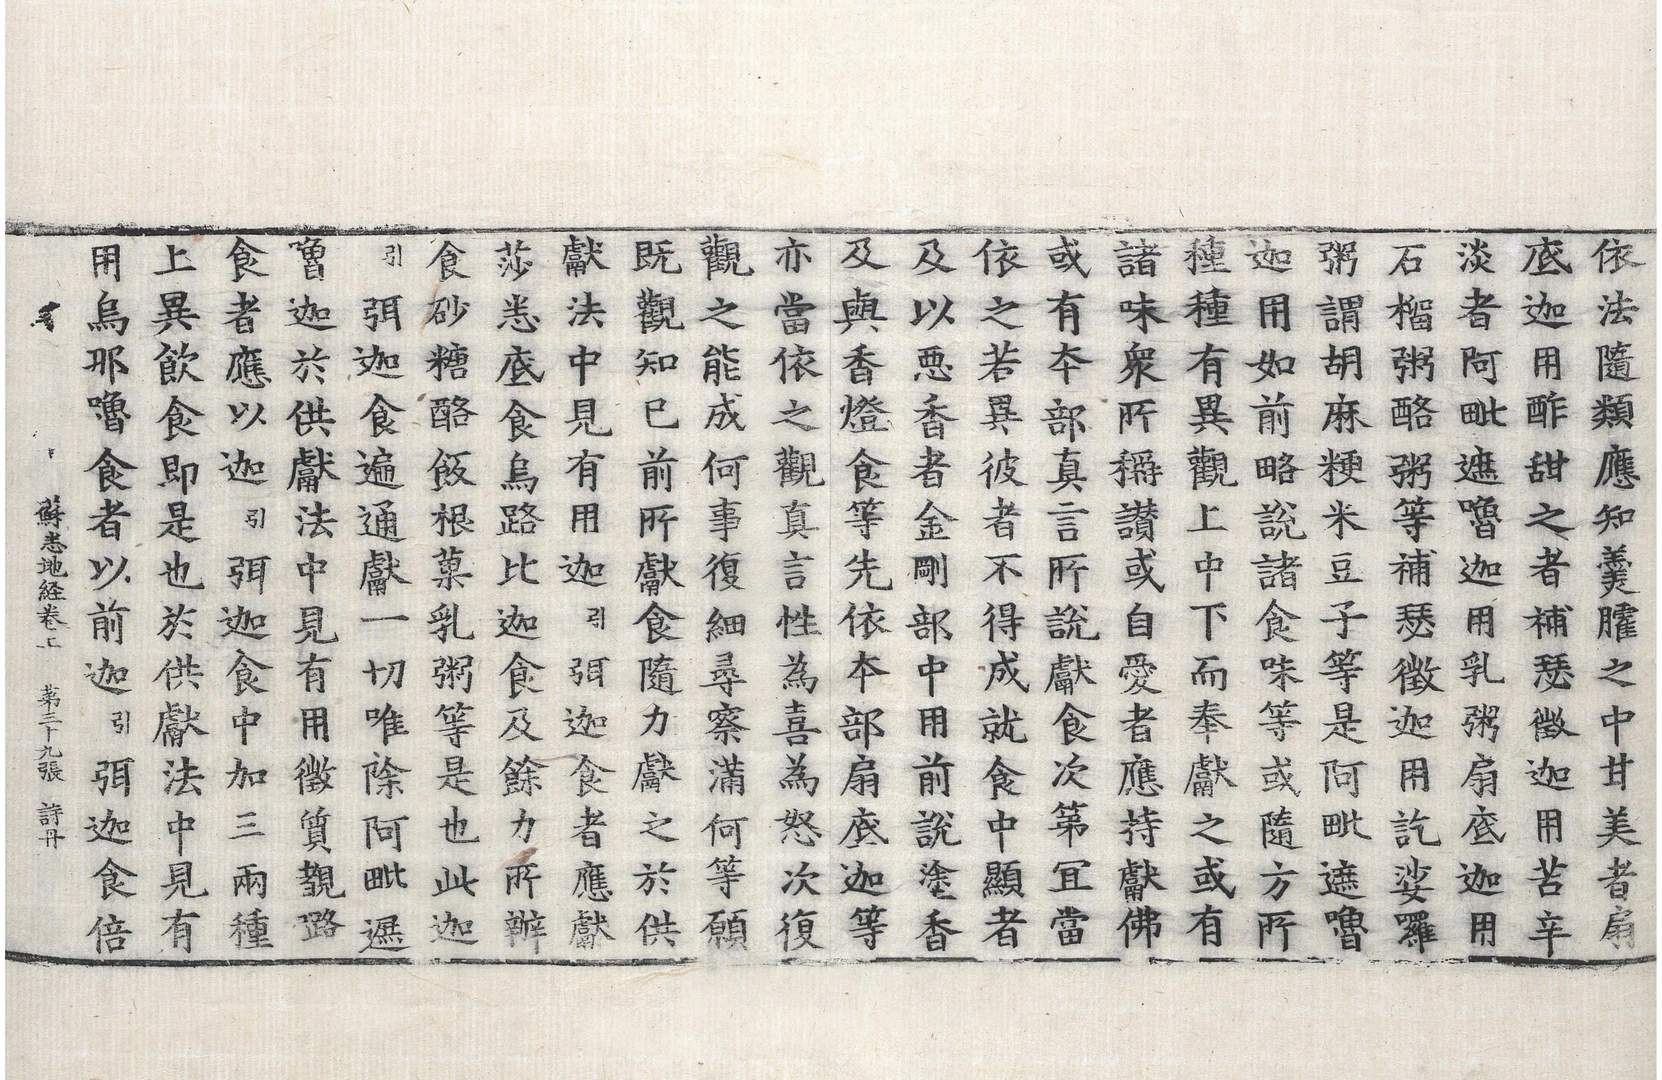 依法隨類應知羹臛之中甘美者扇
底迦用酢甜之者補瑟徵迦用苦辛
淡者阿毗遮嚕迦用乳粥扇底迦用
石榴粥酪粥等補瑟徵迦用訖娑囉
粥謂胡麻粳米豆子等是阿毗遮嚕
迦用如前略說諸食味等或隨方所
種種有異觀上中下而奉獻之或有
諸味衆所稱讃或自愛者應持獻佛
或有本部真言所說獻食次第冝當
依之若異彼者不得成就食中顯者
及以悪香者金剛部中用前說塗香
及與香燈食等先依本部扇底迦等
亦當依之觀真言性為喜為怒次復
觀之能成何事復細尋察滿何等願
既觀知已前所獻食隨力獻之於供
獻法中見有用迦引弭迦食者應獻
莎悉底食烏路比迦食及餘力所辦
食砂糖酪飯根菓乳粥等是也此迦
引弭迦食遍通獻一切唯除阿毗遮
嚕迦於供獻法中見有用徵質覩路
食者應以迦引弭迦食中加三兩種
上異飲食即是也於供獻法中見有
用烏那嚕食者以前迦引弭迦食倍
蘇悉地経卷上 第三十九張 詩丹